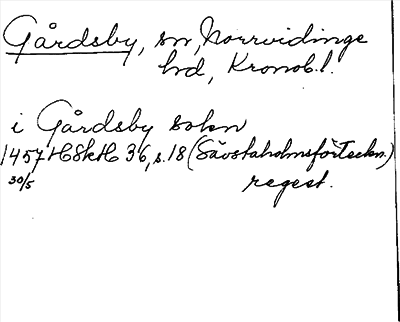 Gårdsby, sn, Norrvidinge
hd, Kronob.l.
i Gårdsby sokn
1457 HSkH 36, s.18 (Sävstaholmsförteckn.)
30/5 regest.